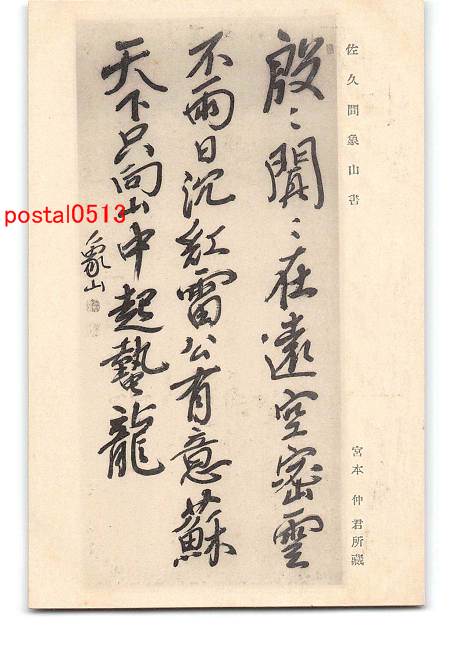 佐久間象山書
殷〻聞〻在遠空密雲
不雨日沉紅雷公有意蘇
天下只向山中起蟄龍
象山
宮本仲君所蔵
postal0513